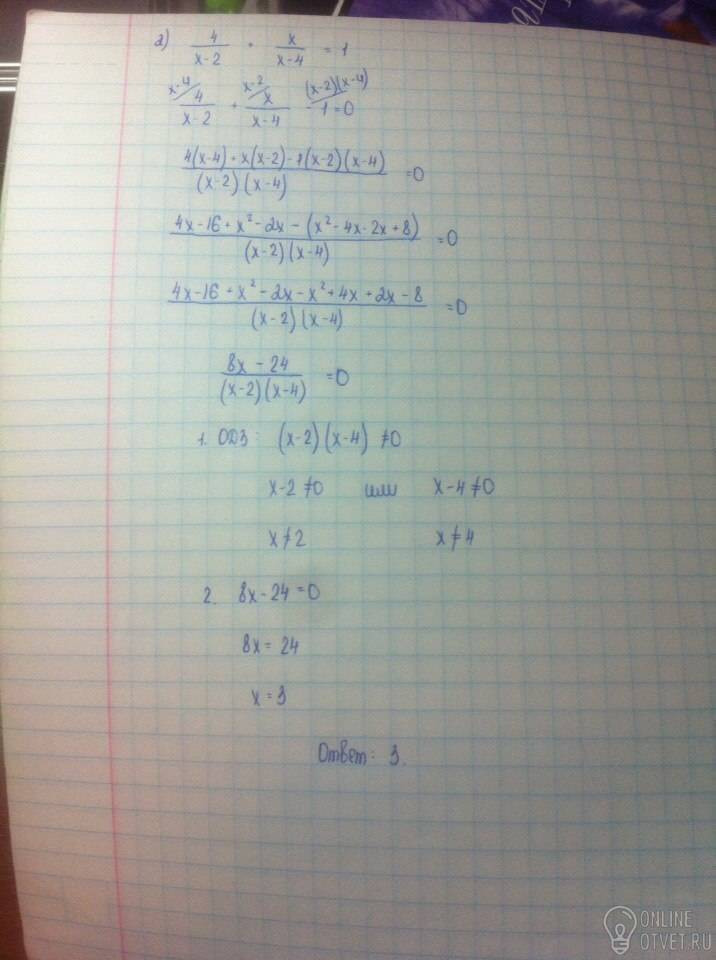 а) 4/(x-2) + x/(x-4) = 1
x-4/ 4/(x-2) + x-2/ x/(x-4) - (x-2)(x-4)/ 1=0
(4(x-4)+x(x-2)-1(x-2)(x-4))/((x-2)(x-4)) =0
(4x-16+x²-2x-(x²-4x-2x+8))/((x-2)(x-4)) =0
(4x-16+x²-2x-x²+4x+2x-8)/((x-2)(x-4)) =0
(8x-24)/((x-2)(x-4)) =0
1. ОДЗ: (x-2)(x-4) ≠0
x-2≠0 или x-4≠0
x≠2 x≠4
2. 8x-24=0
8x=24
x=3
Ответ: 3.
ONLINE
OTVET.RU